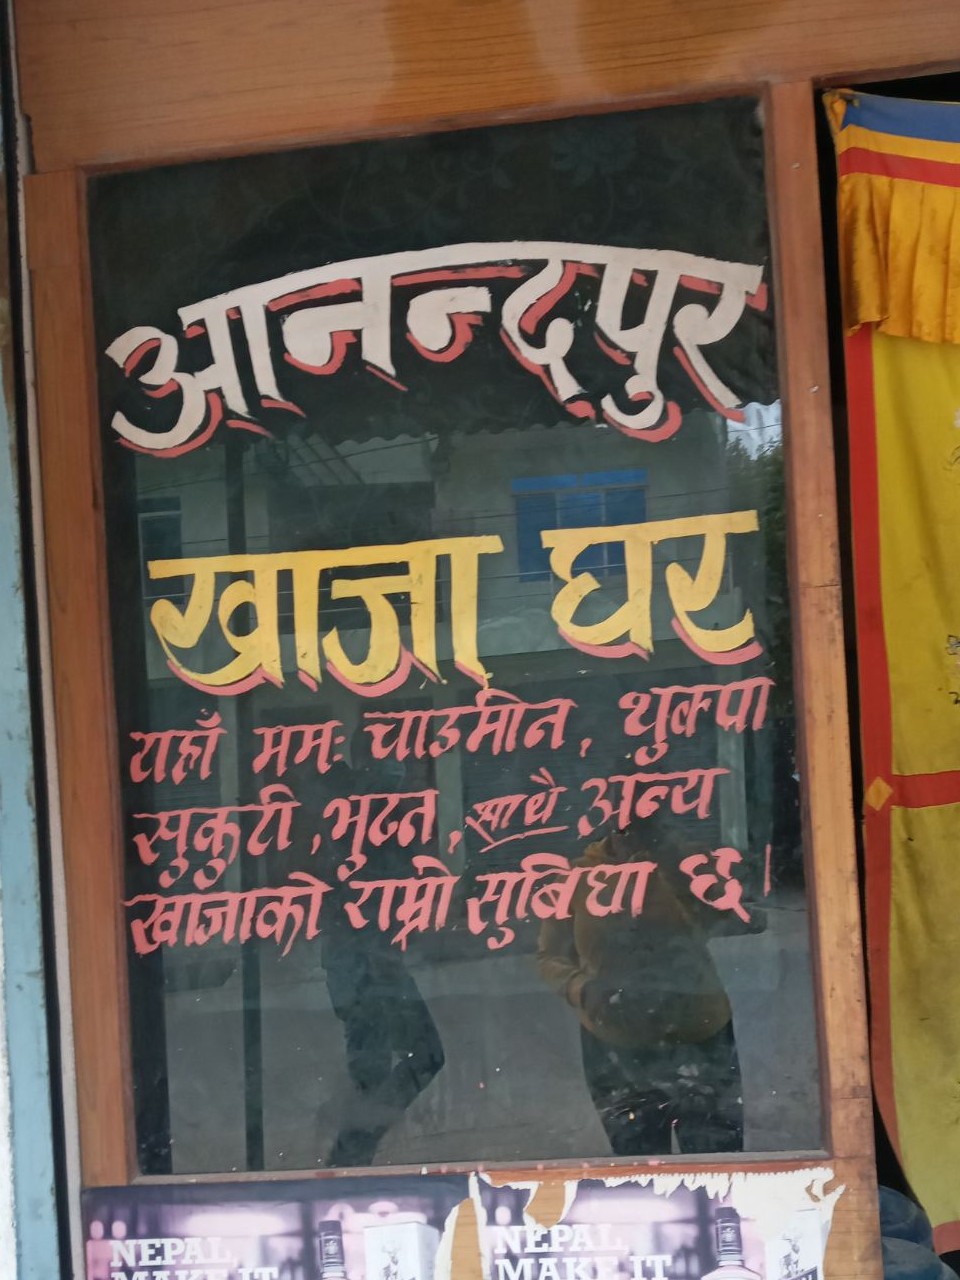 आनन्दपुर
खाजा घर
यहाँ ममः चाउमीन, थुक्पा
सुकुटी, भुटन, साथै अन्य
खाजाको राम्रो सुबिधा छ।
NEPAL, NEPAL,
MAKE IT MAKE IT